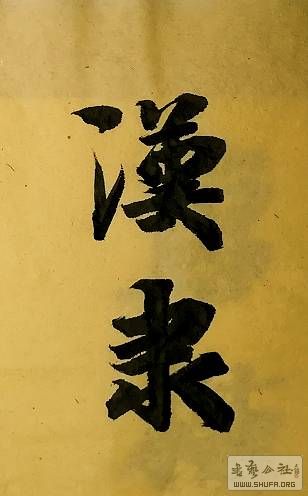 漢隶
書藝公社
WWW.SHUFA.ORG